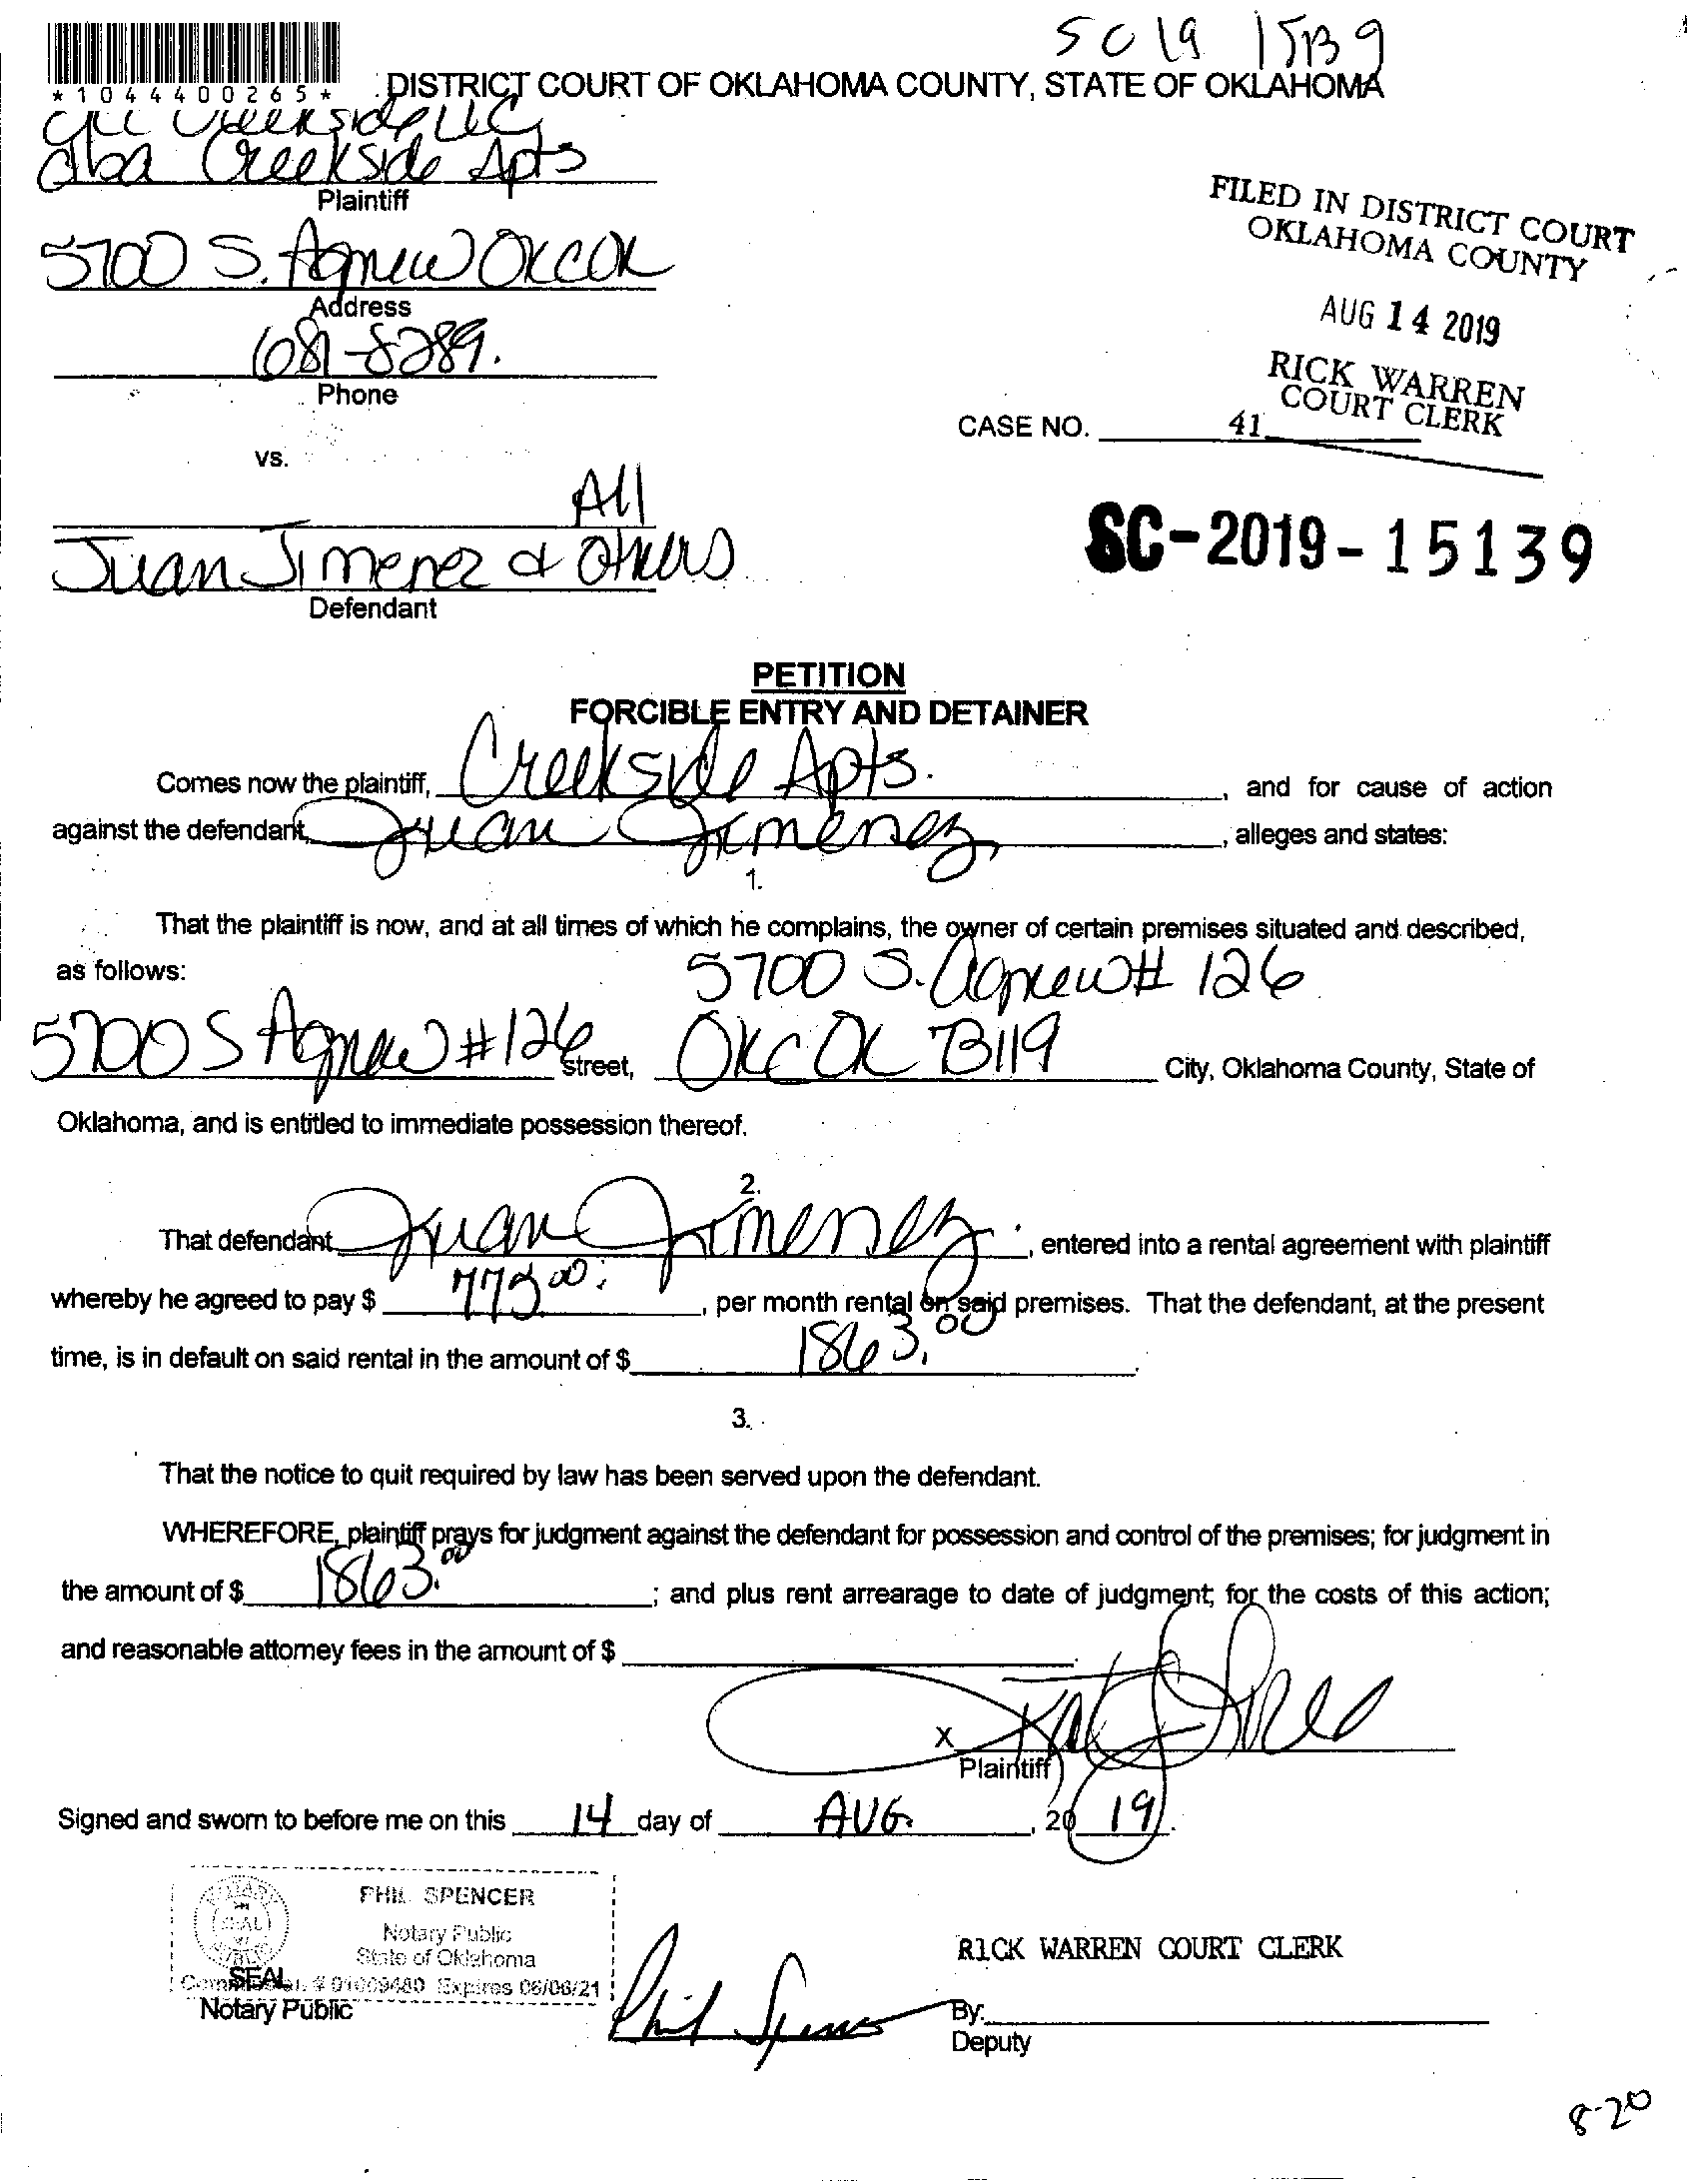 SC 19 15139
*1044400265*
DISTRICT COURT OF OKLAHOMA COUNTY, STATE OF OKLAHOMA
Creekside LLC
dba Creekside Apts
Plaintiff
5700 S. Agnew OKC OK
Address
681-8289.
Phone
vs.
All
Juan Jimenez & Others
Defendant
FILED IN DISTRICT COURT
OKLAHOMA COUNTY
AUG 14 2019
RICK WARREN
COURT CLERK
CASE NO.
41
SC-2019-15139
PETITION
FORCIBLE ENTRY AND DETAINER
Comes now the plaintiff, Creekside Apts. , and for cause of action
against the defendant, Juan Jimenez , alleges and states:
1.
That the plaintiff is now, and at all times of which he complains, the owner of certain premises situated and described,
as follows: 5700 S. Agnew # 126
5700 S Agnew #126 street, OKC OK 73119 City, Oklahoma County, State of
Oklahoma, and is entitled to immediate possession thereof.
2.
That defendant Juan Jimenez , entered into a rental agreement with plaintiff
whereby he agreed to pay $ , per month rental on said premises. That the defendant, at the present
time, is in default on said rental in the amount of $ 1863.00 .
3.
That the notice to quit required by law has been served upon the defendant.
WHEREFORE, plaintiff prays for judgment against the defendant for possession and control of the premises; for judgment in
the amount of $ 1863.00 ; and plus rent arrearage to date of judgment; for the costs of this action;
and reasonable attorney fees in the amount of $ .
X
Plaintiff
Signed and sworn to before me on this 14 day of AUG. , 20 19 .
PHIL SPENCER
Notary Public
State of Oklahoma
Commission # 01009480 Expires 06/06/21
SEAL
Notary Public
Phil Spencer
RICK WARREN COURT CLERK
By:
Deputy
8-20